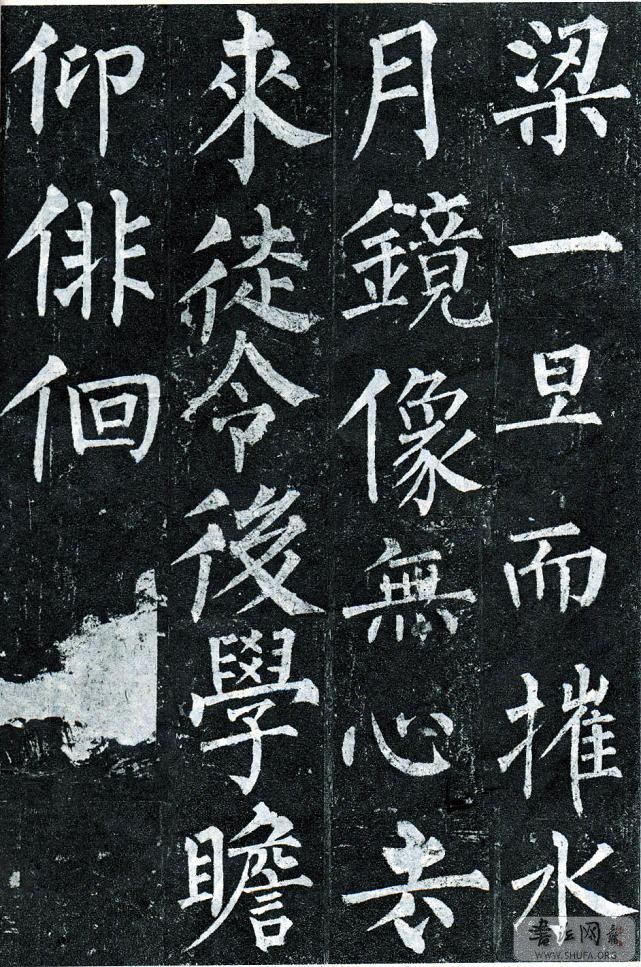 梁一旦而摧水
月鏡像無心去
來徒令後學瞻
仰俳佪
书法网
WWW.SHUFA.ORG